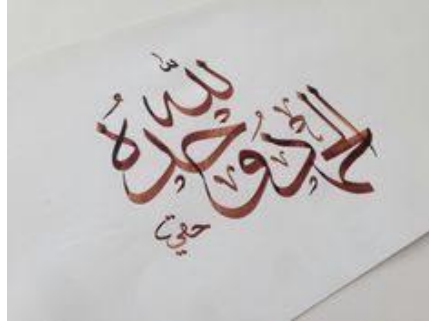 الحمد لله وحدهُ